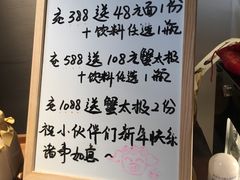 充388送48元面1份
+饮料任选1瓶
充588送108元蟹太极
+饮料任选1瓶
充1088送蟹太极2份
祝小伙伴们新年快乐
诸事如意~